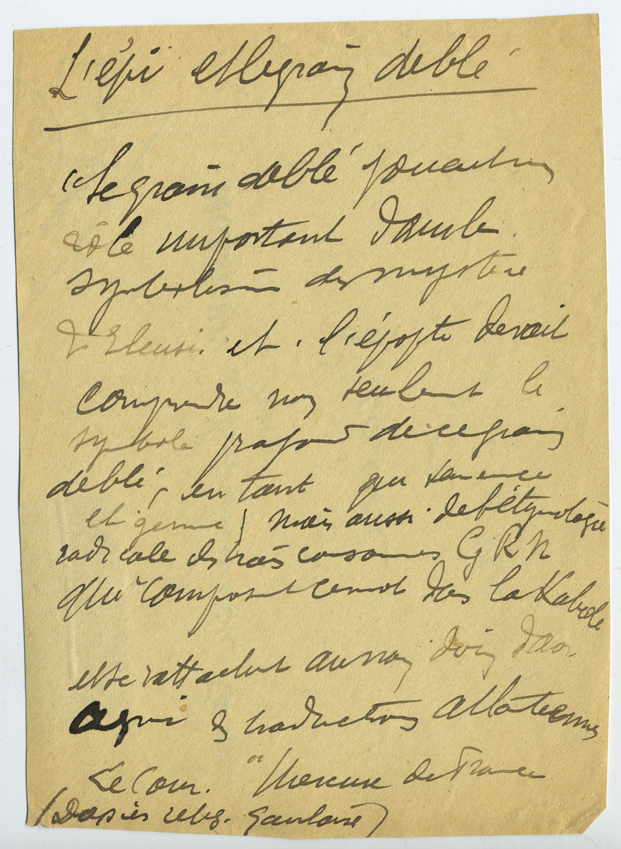 L'épi et le grain de blé
"Le grain de blé jouait un
rôle important dans le
symbolisme des mystère
d'Eleusis et l'épopte devait
comprendre non seulement le
symbole profond de ce grain
de blé, en tant que semence
et germe, mais aussi de l'étymologie
radicale des trois consonnes G R N
qui composent ce mot dans la Kabale
et se rattachent au nom divin d'
Agni & traditions atlantéennes
Le Cour. "Mercure de France
(Dossier relig. gauloise)